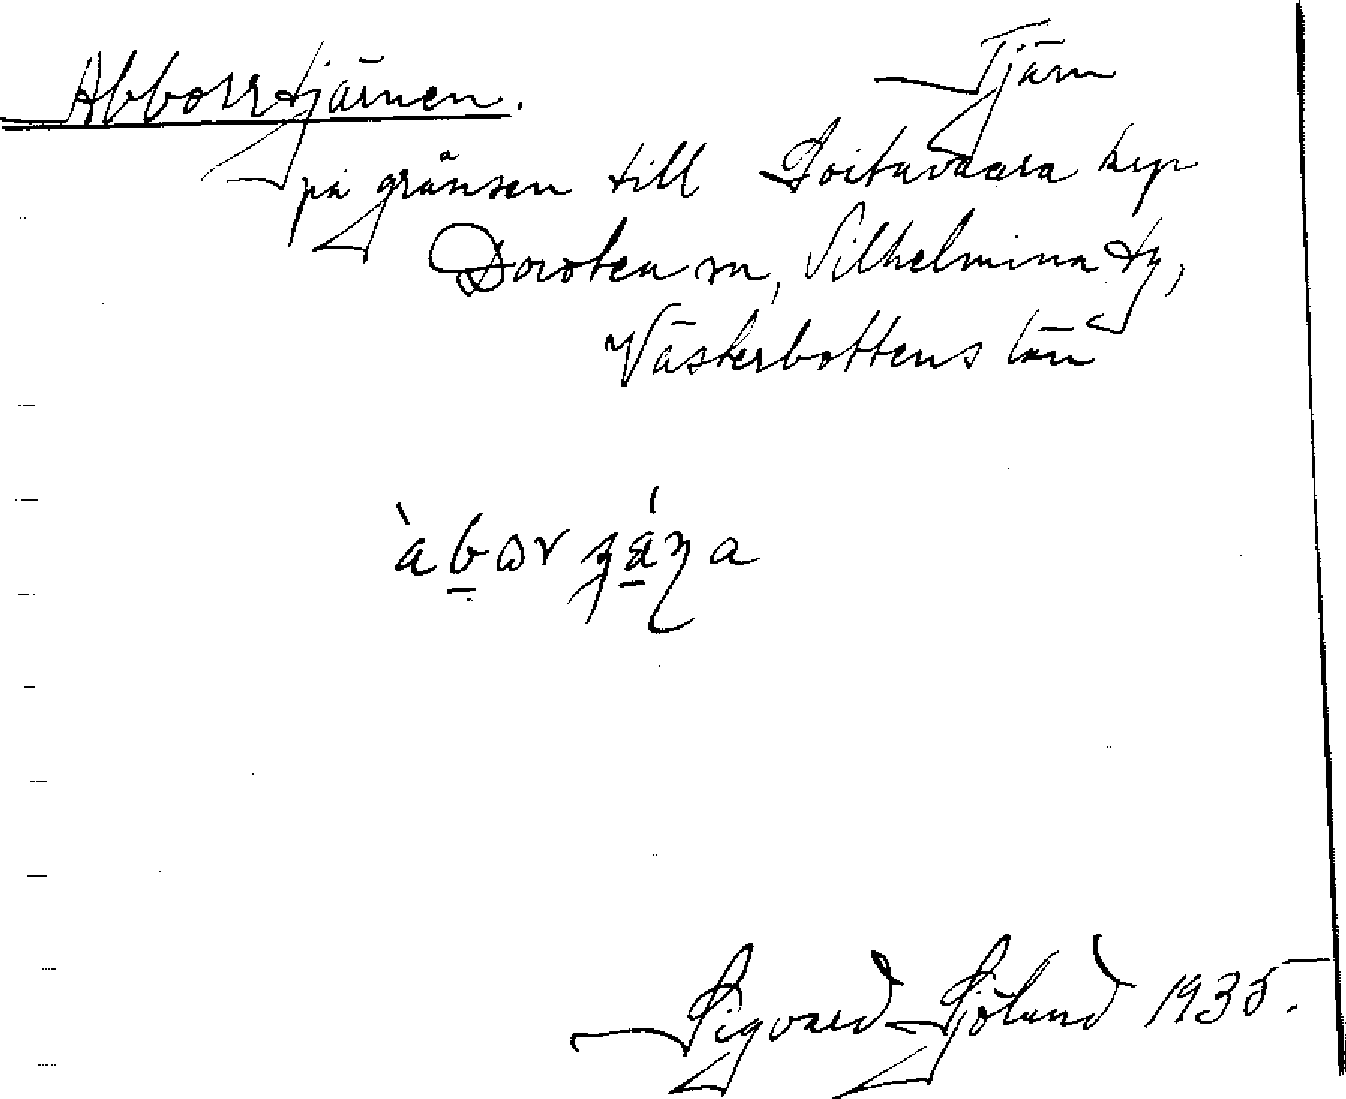 Abborrtjärnen. Tjärn
på gränsen till Soitavaara krp
Dorotea sn, Vilhelmina tg,
Västerbottens län
Sigvard Sjölund 1935.